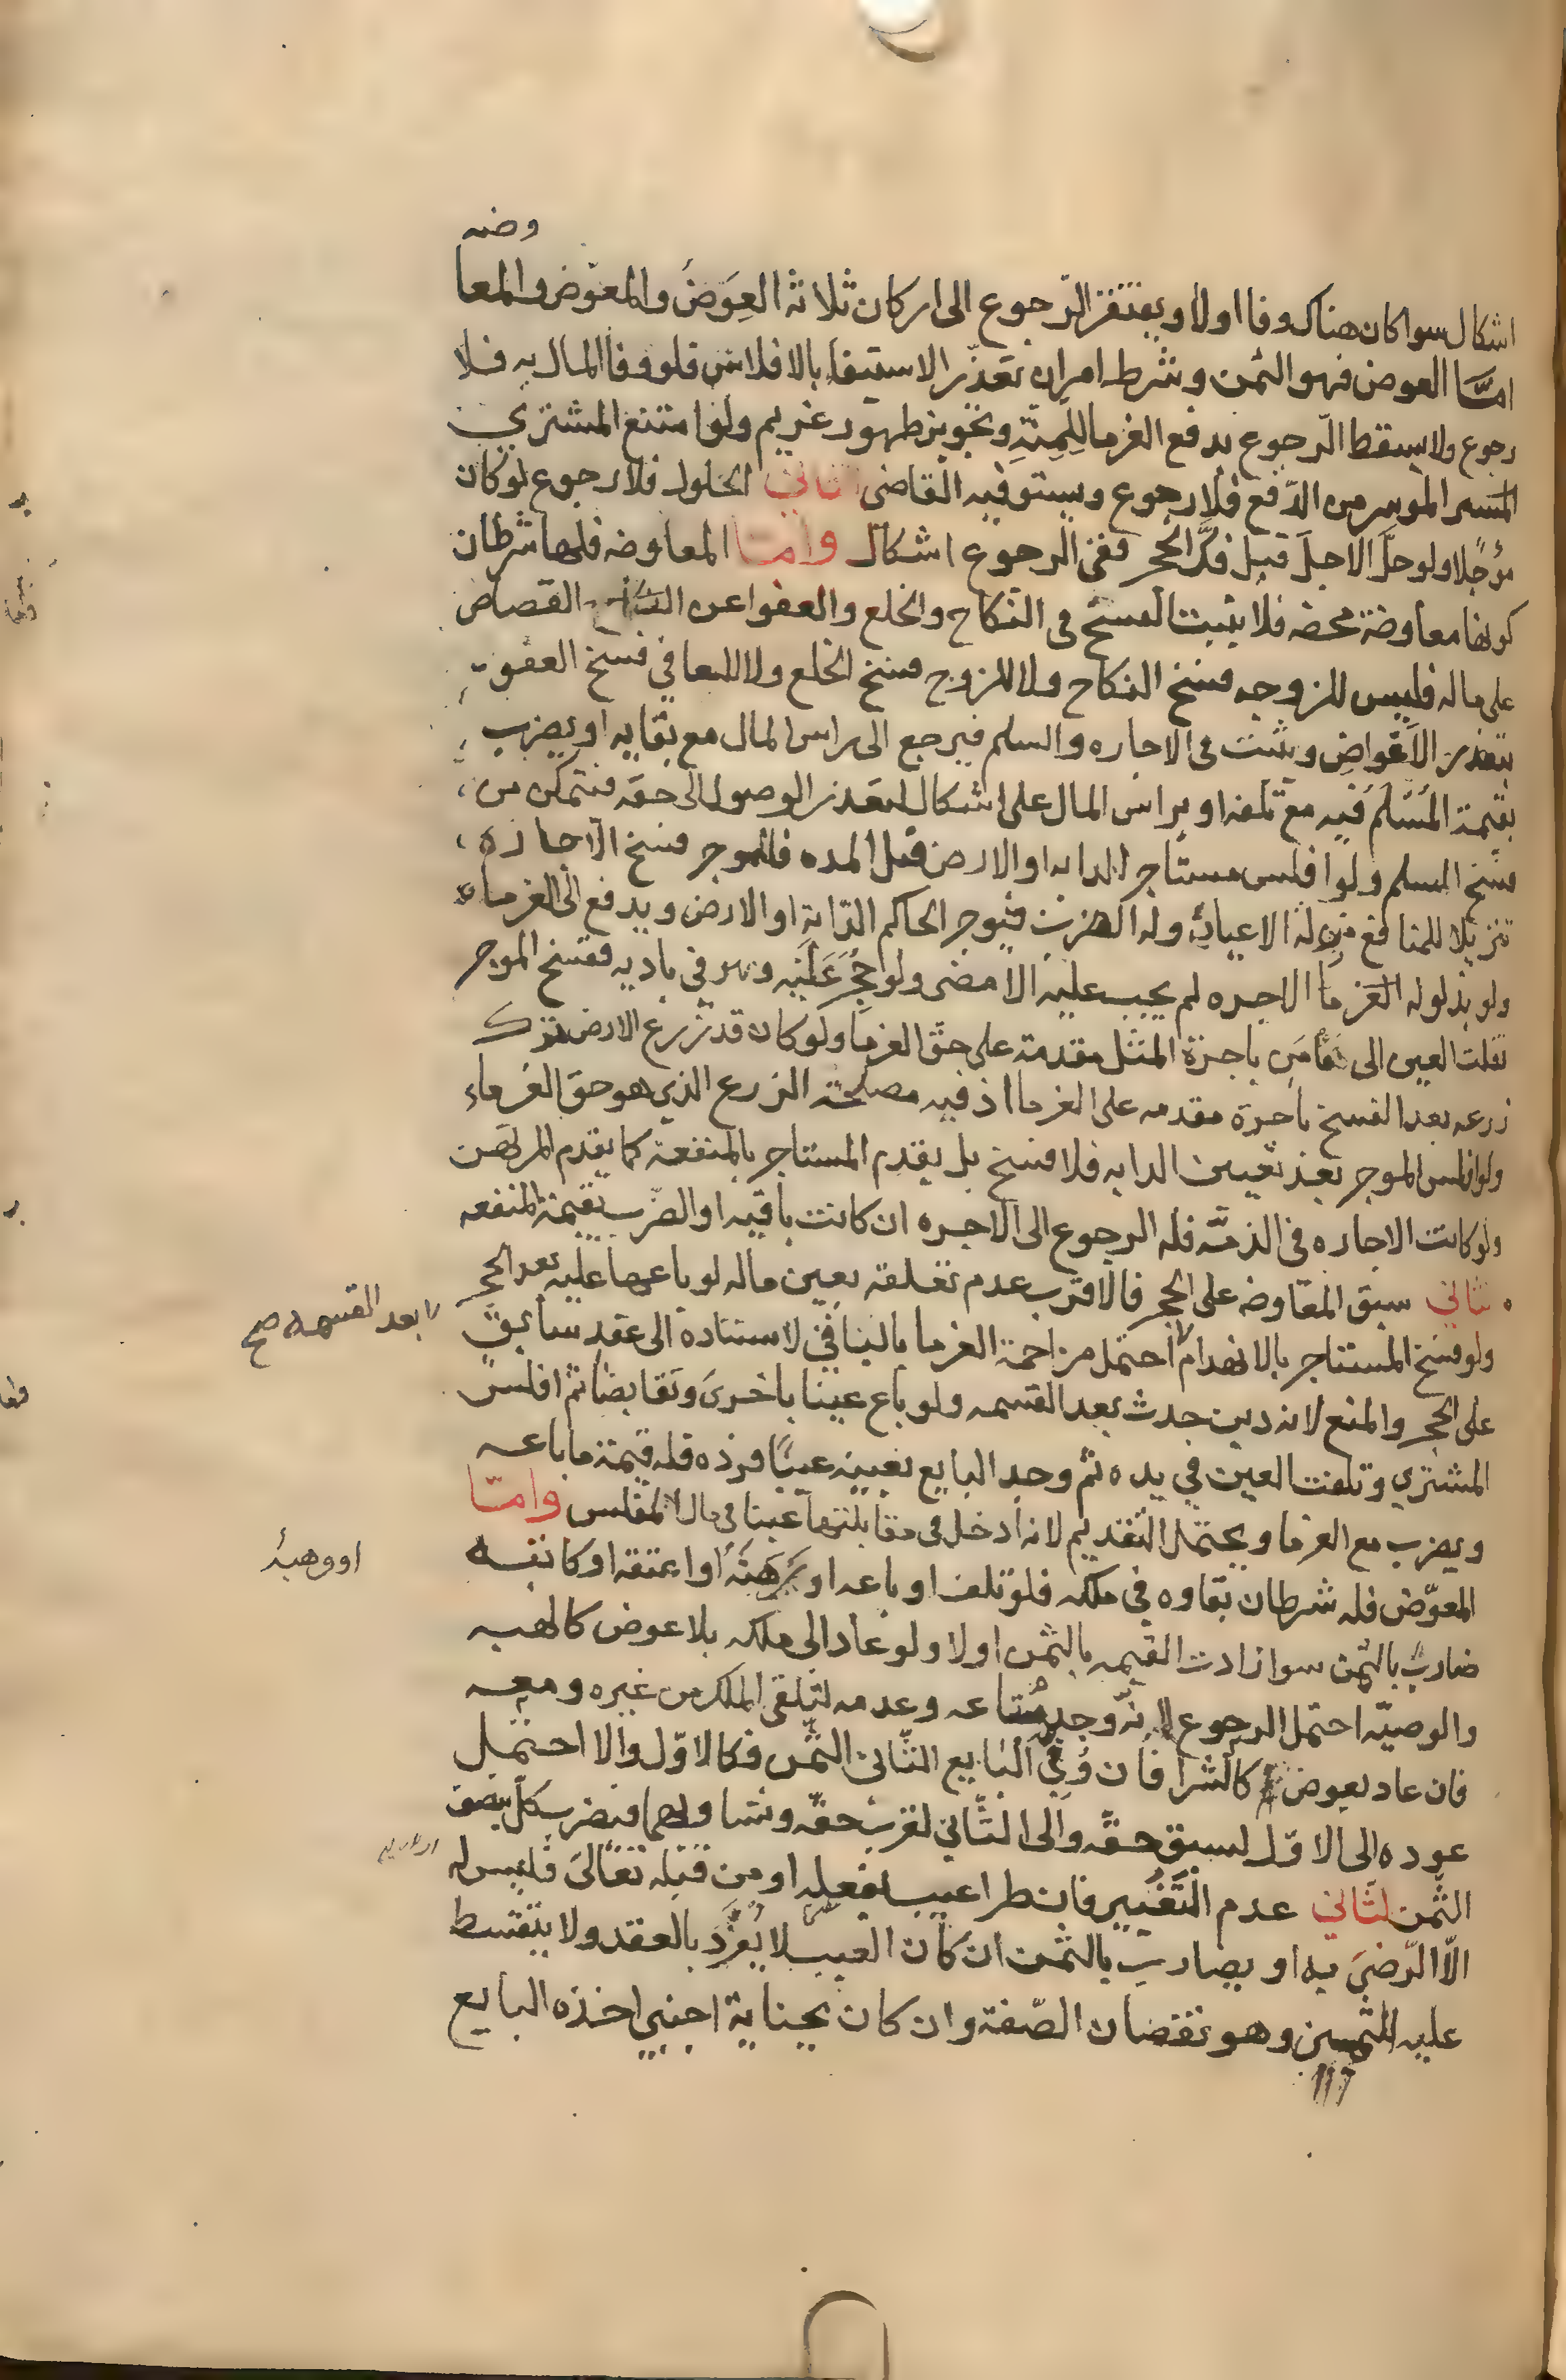 وضه
اشكال سوا كان هناك وفا اولا ويفتقر الرّجوع الى اركان ثلاثة العِوَض والمعوّض والمعا
امّا العوض فهو الثمن وشرطه امران تعذّر الاستيفاء بالافلاس فلو وفا المال به فلا
رجوع ولا يسقط الرّجوع بدفع الغرما للمِنّةِ وتجويز ظهور غريم ولو امتنع المشتري
الموسر من الدّفع فلا رجوع ويستوفيه القاضى الثاني الحلول فلا رجوع لو كان
مؤجّلا ولو حلّ الاجل قبل فكّ الحجر ففى الرجوع اشكال وامّا المعاوضه فلها شرطان
كونها معاوضة محضه فلا يثبت الفسخ فى النّكاح والخلع والعفو عن القصاص
على مال فليس للزوجه فسخ النكاح ولا للزوج فسخ الخلع ولا للعافي فسخ العفو
بتعذر الاَعْواضِ ويثبت فى الاجاره والسلم فيرجع الى راس المال مع بقايه او يضرب
بقيمة المُسْلَم فيه مع تلفه او براس المال على اشكال لتعذر الوصول الى حقه فيتمكن من
فسخ السلم ولو افلس مستاجر الدابه او الارض قبل المده فللموجر فسخ الاجاره
تنزيلا للمنافع منزلة الاعيان وله فيوجر الحاكم الدّابة او الارض ويدفع الى الغرماء
ولو بذل له الغرما الاجره لم يجب عليه الامضى ولو حُجِرَ عَلَيْه وهو فى باديه ففسخ الموجر
نقلت العين الى مَأمَنٍ باجرة المثل مقدمة على حقّ الغرما ولو كان قد زرع الارض ترك
زرعه بعد الفسخ باجرة مقدمه على الغرما اذ فيه مصلحة الزرع الذي هو حق الغرماء
ولو افلس الموجر بعد تعيين الدابه فلا فسخ بل يقدم المستاجر بالمنفعة كما يقدم المرتهن
ولو كانت الاجاره فى الذمّه فله الرجوع الى الاجره ان كانت باقيه او الضّرب بقيمة المنفعه
ثاني سبق المعاوضه على الحجر فالاقرب عدم تعلقه بعين ماله لو باعها عليه بعد الحجر
ولو فسخ المستاجر بالانهدام احتمل مزاحمة الغرما بالباقي لاستناده الى عقد سابق
بعد القسمه صح
على الحجر والمنع لانه دين حدث بعد القسمه ولو باع عينا باخرى وتقابضا ثم افلس
المشتري وتلفت العين في يده ثم وجد البايع بعينه عيبًا فرده فله قيمة ما باعه
ويضرب مع الغرما ويحتمل التقديم لانه ادخل فى مقابلتها عينا فى مال المفلس وامّا
المعوّض فله شرطان بقاوه في ملكه فلو تلف او باعه او رَهَنَهُ او اعتقه او كاتبه
او وهبه
ضارب بالثمن سوا زادت القيمه بالثمن اولا ولو عاد الى ملكه بلا عوض كالهبه
والوصيّه احتمل الرجوع لانّه وجد مُتاعه وعدمه لتلقى الملك من غيره ومعه
فان عاد بعوض كالشرا فان وُفِّي البايع الثّانى الثمن فكالاوّل والا احتمل
عوده الى الاوّل لسبق حقّه والى الثّاني لقرب حقّه وتساويهما فيضرب كلّ بنصف
الثّمن الثاني عدم التّغيير فان طرا عيب بفعله او من قبله تعالى فليس له
الّا الرّضى به او يضارب بالثمن ان كان العيب لا يُفرَد بالعقد ولا يتقسط
عليه الثمن وهو نقصان الصّفة وان كان بجناية اجنبى اخذه البايع